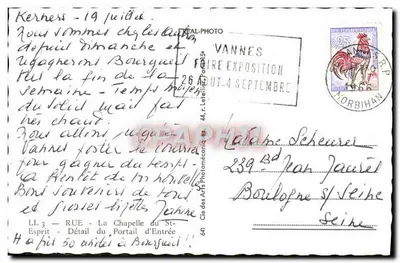 Kerners - 19 juillet
Nous sommes chez les
depuis Dimanche et
regagnerons Bourgueil
sur la fin de la
semaine - Temps moyen
du soleil mais pas
très chaud.
Nous allons
Vannes poster le courrier
pour gagner du temps -
A bientôt de
Bons souvenirs de tous
et grosses bizettes Janine
LL 3 - RUE - La Chapelle du St-
Esprit - Détail du Portail d'Entrée
Il a fait 50 à Bourgueil !!
REAL-PHOTO
Cie des Arts Photomécaniques - 44, r. Letellier, Paris-15e
VANNES
FOIRE EXPOSITION
26 AOUT-4 SEPTEMBRE
VANNES R.P.
MORBIHAN
Madame Scheurer
239 Bd Jean Jaurès
Boulogne s/ Seine
Seine